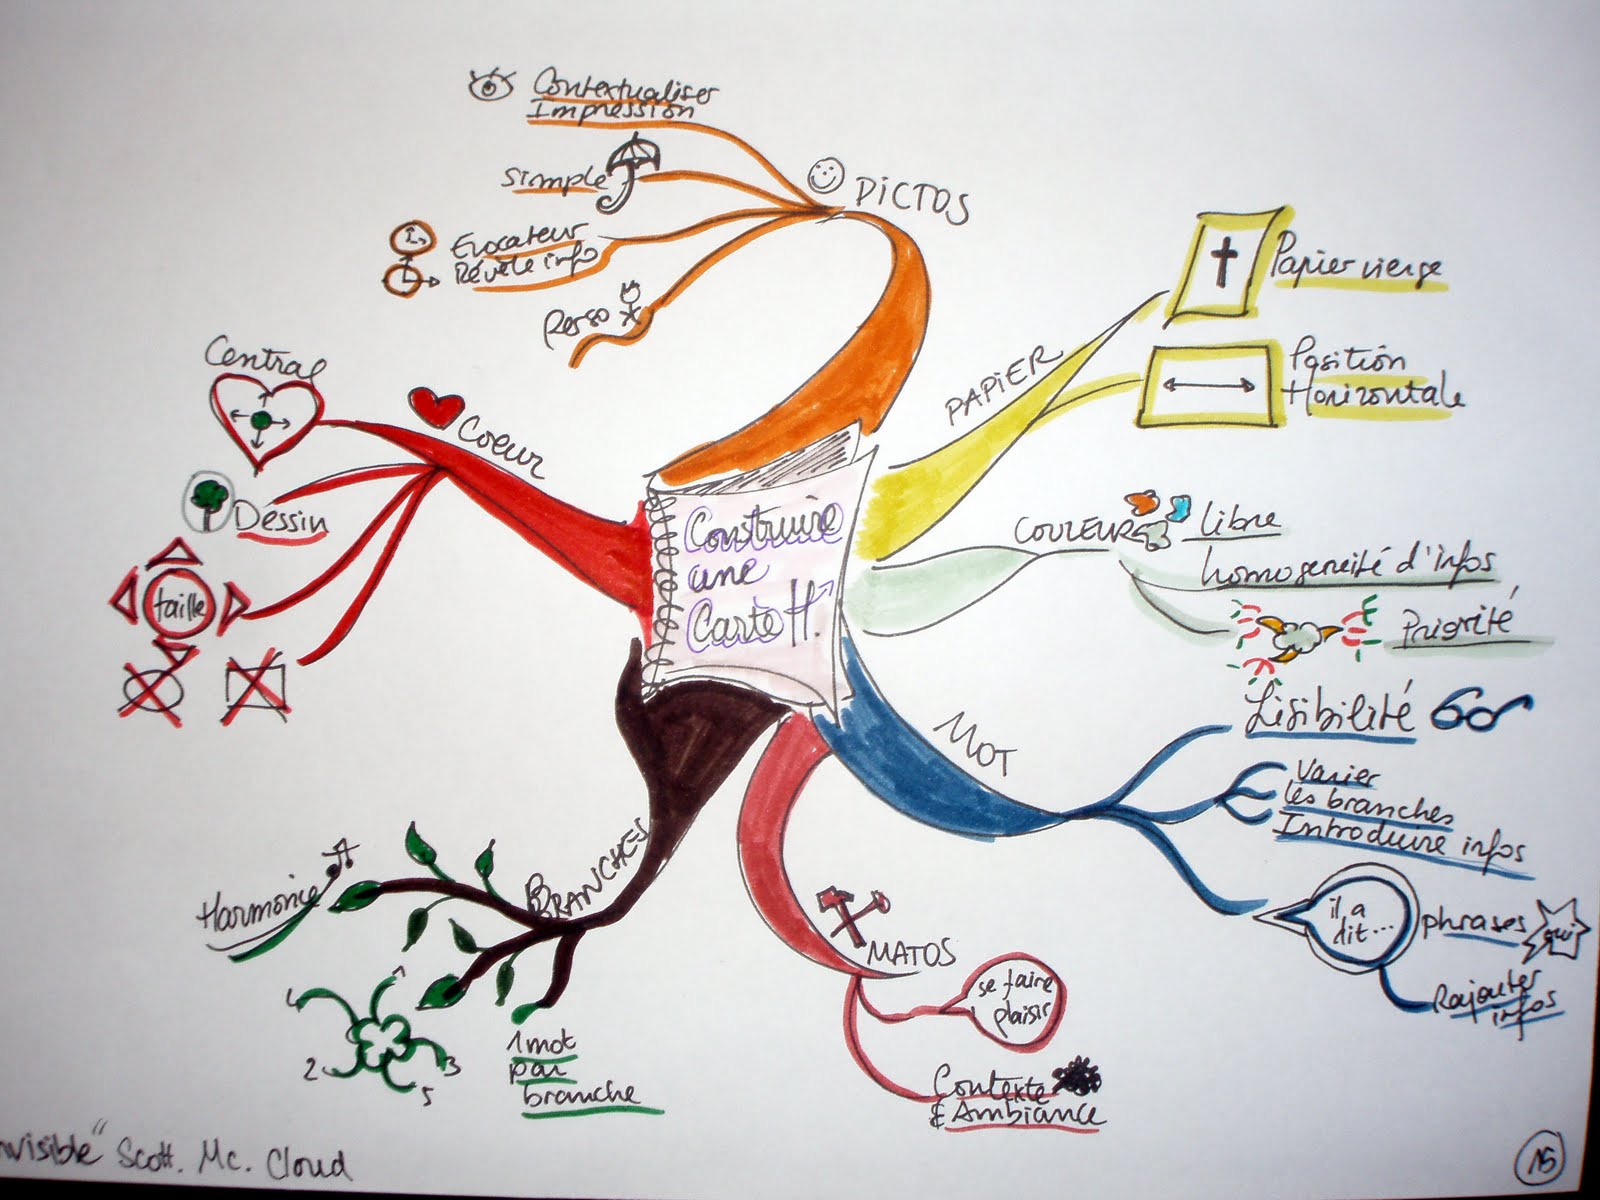 Construire
une
Carte H.
PICTOS
Contextualiser
Impression
simple
Evocateur
Révèle info
Perso
PAPIER
Papier vierge
Position
Horizontale
COULEUR
libre
homogeneité d'infos
Priorité
MOT
Lisibilité
Varier
les branches
Introduire infos
il a
dit...
phrases
oui
Rajouter
infos
MATOS
se faire
plaisir
Contexte
& Ambiance
BRANCHES
Harmonie
1
2
3
4
5
1 mot
par
branche
Coeur
Central
Dessin
taille
nvisible" Scott. Mc. Cloud
15